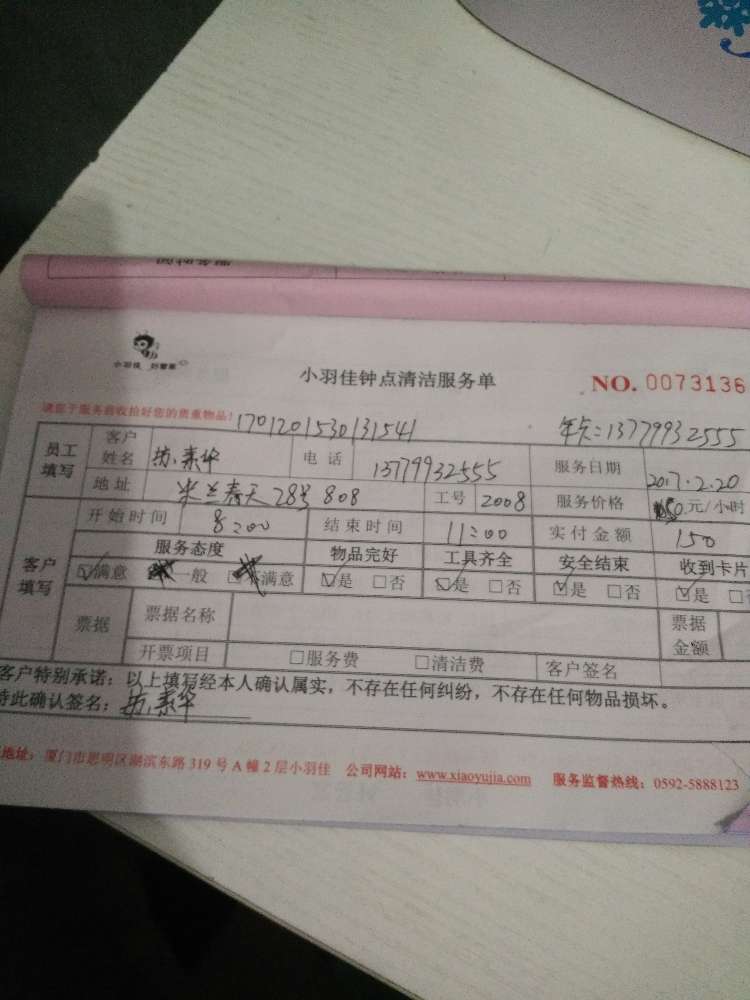 小羽佳 好管家
小羽佳钟点清洁服务单
NO. 0073136
请您于服务前收拾好您的贵重物品!
1701201530131541 年卡:13779932555
员工填写 客户姓名 苏素华 电话 13779932555 服务日期 2017.2.20
地址 米兰春天28号808 工号 2008 服务价格 50元/小时
客户填写 开始时间 8:00 结束时间 11:00 实付金额 150
服务态度 物品完好 工具齐全 安全结束 收到卡片
☑满意 一般 不满意 ☑是 □否 ☑是 □否 ☑是 □否 ☑是 □否
票据 票据名称 票据金额
开票项目 □服务费 □清洁费 客户签名
客户特别承诺:以上填写经本人确认属实,不存在任何纠纷,不存在任何物品损坏。
特此确认签名:苏素华
地址:厦门市思明区湖滨东路319号A幢2层小羽佳 公司网站:www.xiaoyujia.com 服务监督热线:0592-5888123